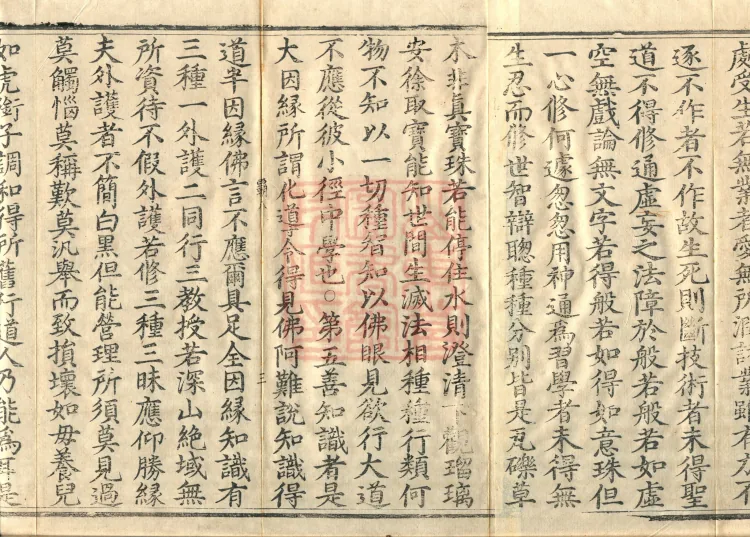 處受生若無業者愛無所潤諸業雖有力不
逐不作者不作故生死則斷技術者未得聖
道不得修通虛妄之法障於般若般若如虛
空無戲論無文字若得般若如得如意珠但
一心修何遽怱怱用神通爲習學者未得無
生忍而修世智辯聰種種分別皆是瓦礫草
木非真寶珠若能停住水則澄清下觀瑠璃
安徐取寶能知世間生滅法相種種行類何
物不知以一切種智知以佛眼見欲行大道
不應從彼小徑中學也○第五善知識者是
大因緣所謂化導令得見佛阿難說知識得
三
道半因緣佛言不應爾具足全因緣知識有
三種一外護二同行三教授若深山絕域無
所資待不假外護若修三種三昧應仰勝緣
夫外護者不簡白黑但能營理所須莫見過
莫觸惱莫稱歎莫汎舉而致損壞如母養兒
如虎銜子調和得所舊行道人乃能爲耳是